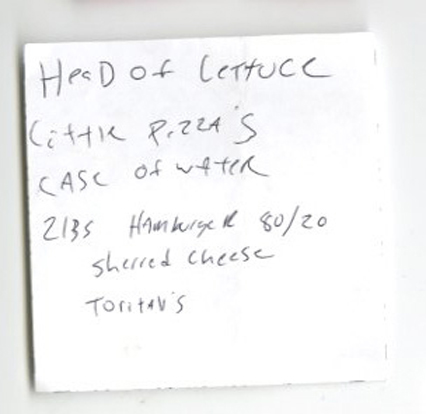 Head of Lettuce
Little Pizza's
Case of water
2lbs Hamburger 80/20
sherred cheese
Toritav's